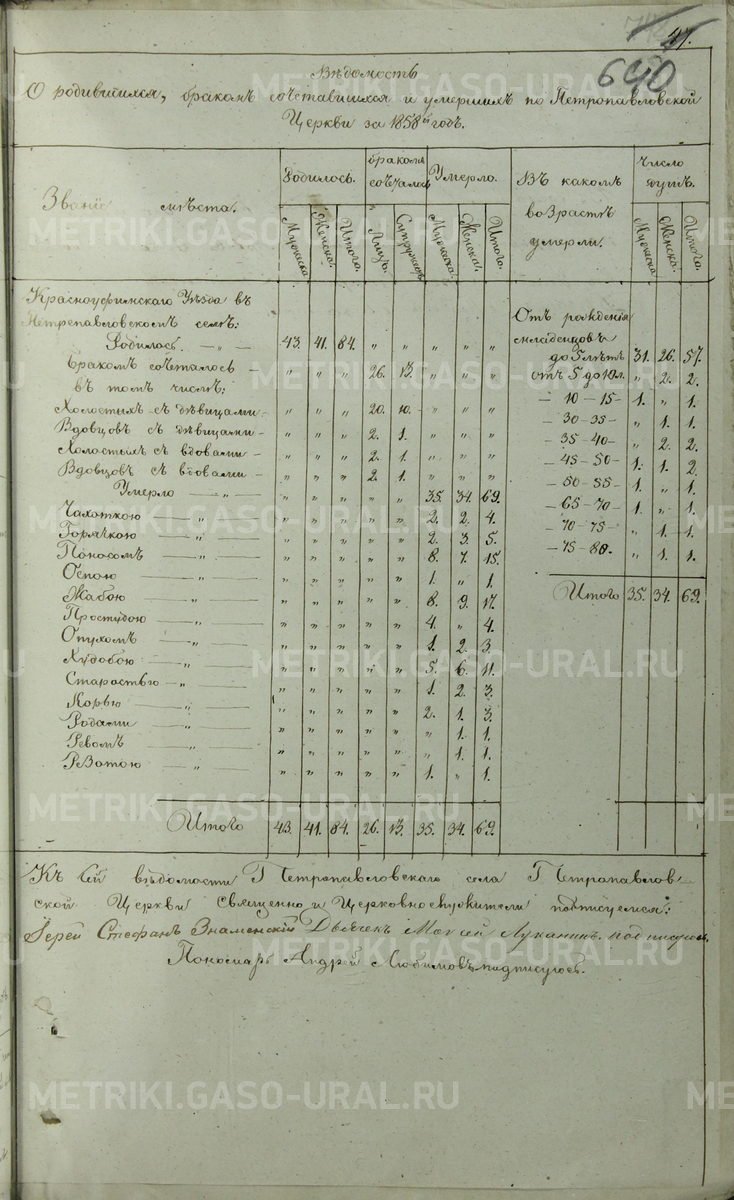 47.
640
Вѣдомость
О родившихся, бракомъ сочетавшихся и умершихъ по Петропавловской
Церкви за 1858й годъ.
Званiе мѣста.
Родилось.
Мужеска
Женска.
Итого.
бракомъ сочеталось
Лицъ.
Супружествъ
Умерло.
Мужеска.
Женска.
Итого.
Въ какомъ возрастѣ умерли.
Число душъ.
Мужеска
Женска.
Итого.
Красноуфимскаго Уѣзда въ
Петропавловскомъ селѣ:
Родилось. — „ — 43. 41. 84. „ „ „ „ „
Бракомъ сочеталось — „ „ „ 26. 13. „ „ „
въ томъ числѣ:
Холостыхъ съ дѣвицами — „ „ „ 20. 10. „ „ „
Вдовцовъ съ дѣвицами — „ „ „ 2. 1. „ „ „
Холостыхъ съ вдовами — „ „ „ 2. 1. „ „ „
Вдовцовъ съ вдовами — „ „ „ 2. 1. „ „ „
Умерло — „ — „ „ „ „ „ 35. 34. 69.
Чахоткою „ „ „ „ „ „ 2. 2. 4.
Горячкою „ „ „ „ „ „ 2. 3. 5.
Поносомъ „ „ „ „ „ „ 8. 7. 15.
Оспою „ „ „ „ „ „ 1. „ 1.
Жабою „ „ „ „ „ „ 8. 9. 17.
Простудою „ „ „ „ „ „ 4. „ 4.
Опухомъ „ „ „ „ „ „ 1. 2. 3.
Худобою „ „ „ „ „ „ 5. 6. 11.
Старостью — „ „ „ „ „ „ 1. 2. 3.
Корью „ „ „ „ „ „ 2. 1. 3.
Родами „ „ „ „ „ „ „ 1. 1.
Ревомъ „ „ „ „ „ „ „ 1. 1.
Рвотою „ „ „ „ „ „ 1. „ 1.
Итого 43. 41. 84. 26. 13. 35. 34. 69.
Отъ рожденiя
младенцовъ
до 5 лѣтъ 31. 26. 57.
отъ 5 до 10 л. „ 2. 2.
— 10 — 15 — 1. „ 1.
— 30 — 35 — „ 1. 1.
— 35 — 40 — „ 2. 2.
— 45 — 50 — 1. 1. 2.
— 50 — 55 — 1. „ 1.
— 65 — 70 — 1. „ 1.
— 70 — 75 — „ 1. 1.
— 75 — 80. — „ 1. 1.
Итого 35. 34. 69.
Къ сей вѣдомости Петропавловскаго села Петропавлов-
ской Церкви священно и Церковнослужители подписуемся:
Iерей Стефанъ Знаменскiй Дьячекъ Моvсей Луканинъ. подписуюсь.
Пономарь Андрей Любимовъ подписуюсь.
METRIKI.GASO-URAL.RU